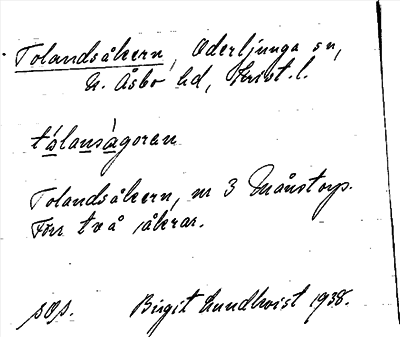 Tolandsåkern, Oderljunga sn,
N. Åsbo hd, Krist. l.
tálansàgoran
Tolandsåkern, nr 3 Månstorp.
Förr två åkrar.
sOp. Birgit Lundkvist 1938.